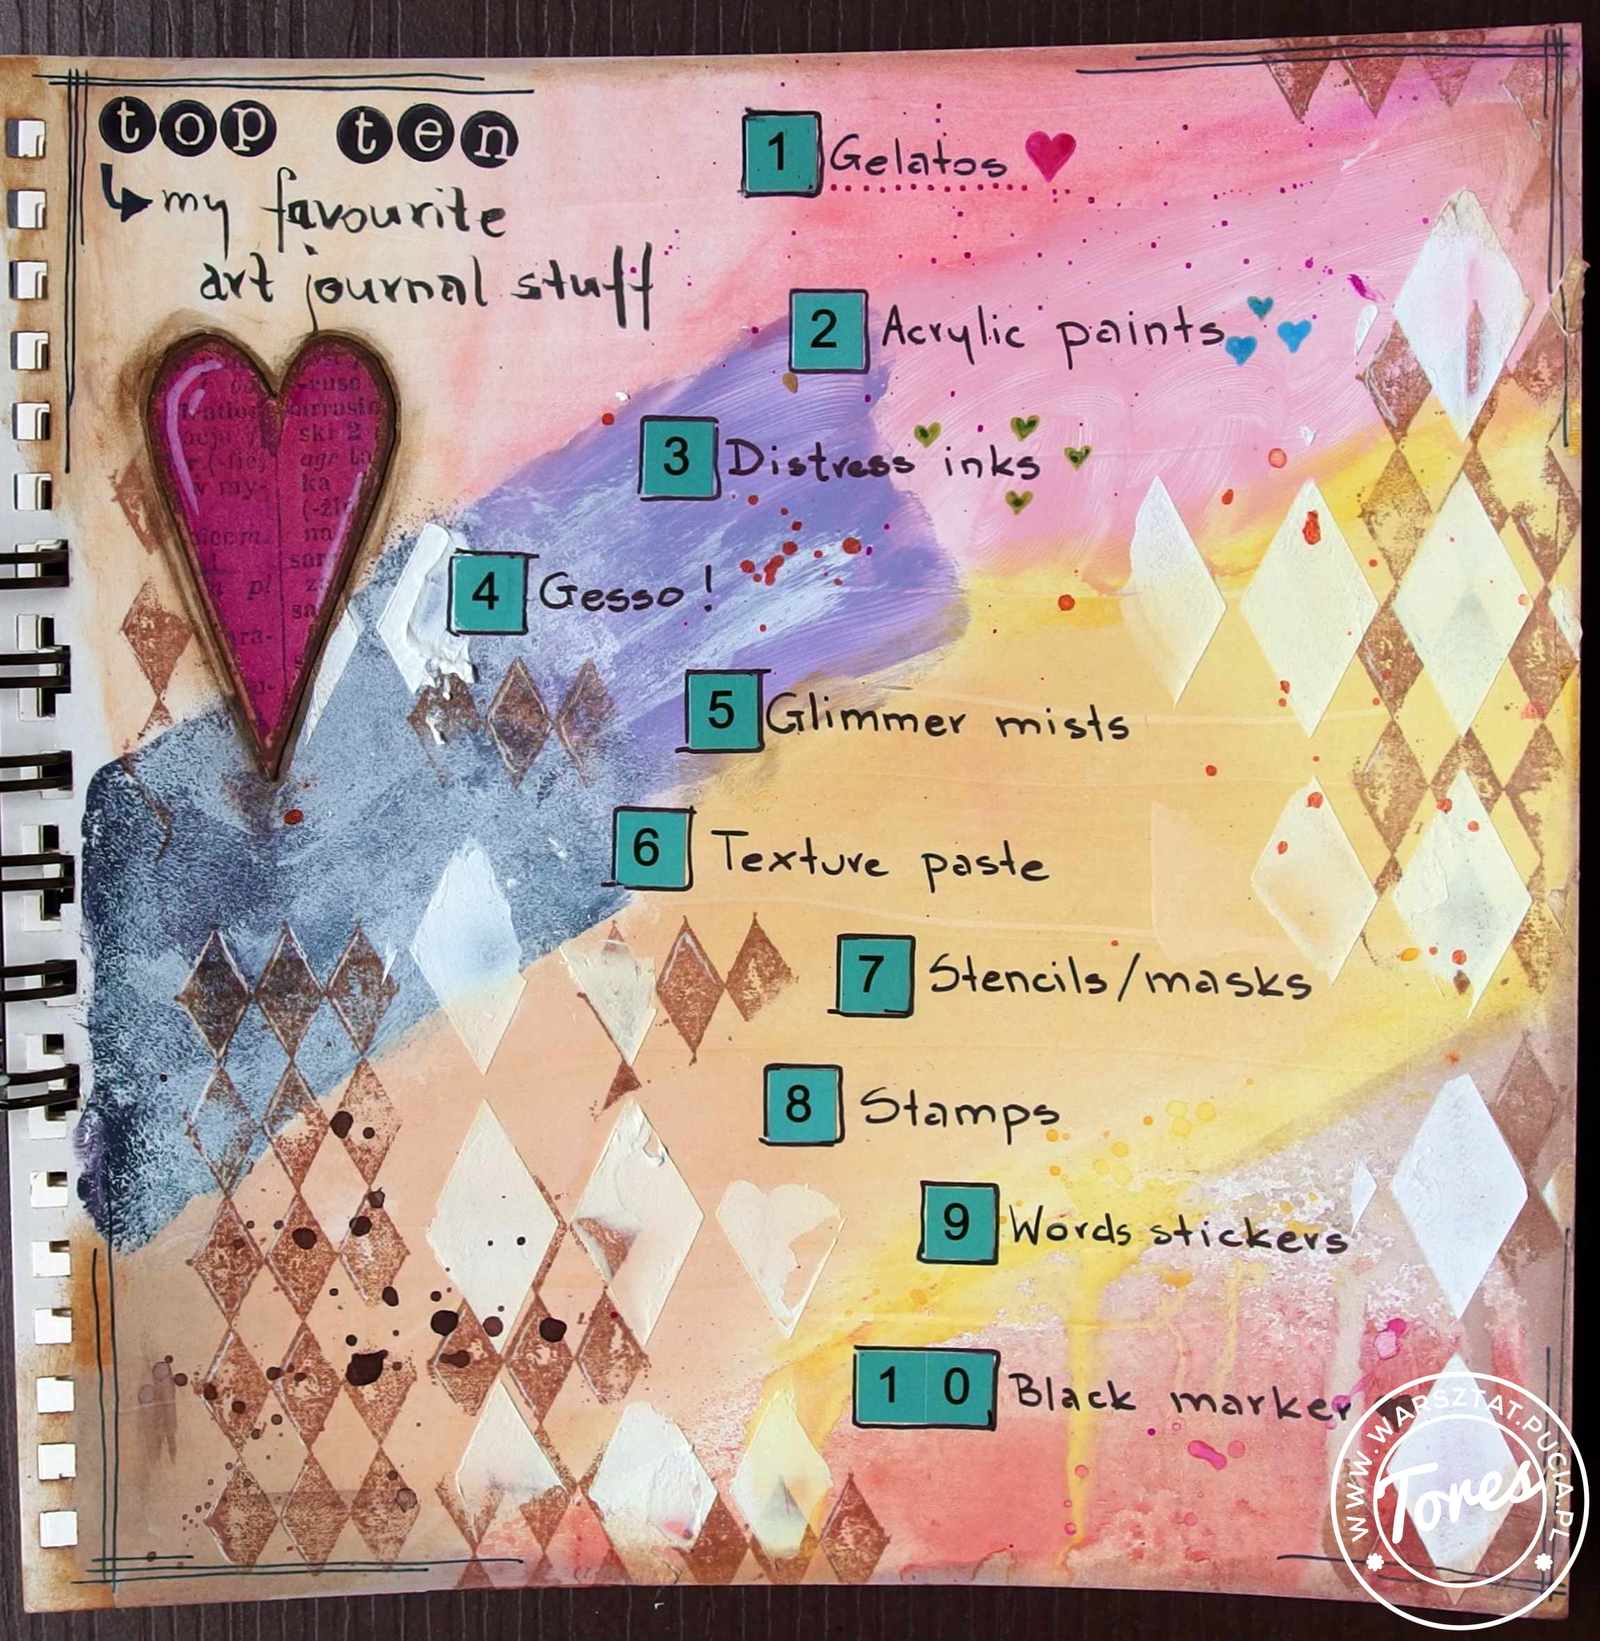 top ten
my favourite
art journal stuff
1 Gelatos
2 Acrylic paints
3 Distress inks
4 Gesso!
5 Glimmer mists
6 Texture paste
7 Stencils/masks
8 Stamps
9 Words stickers
10 Black marker
WWW.WARSZTAT.PUCIA.PL
Tores